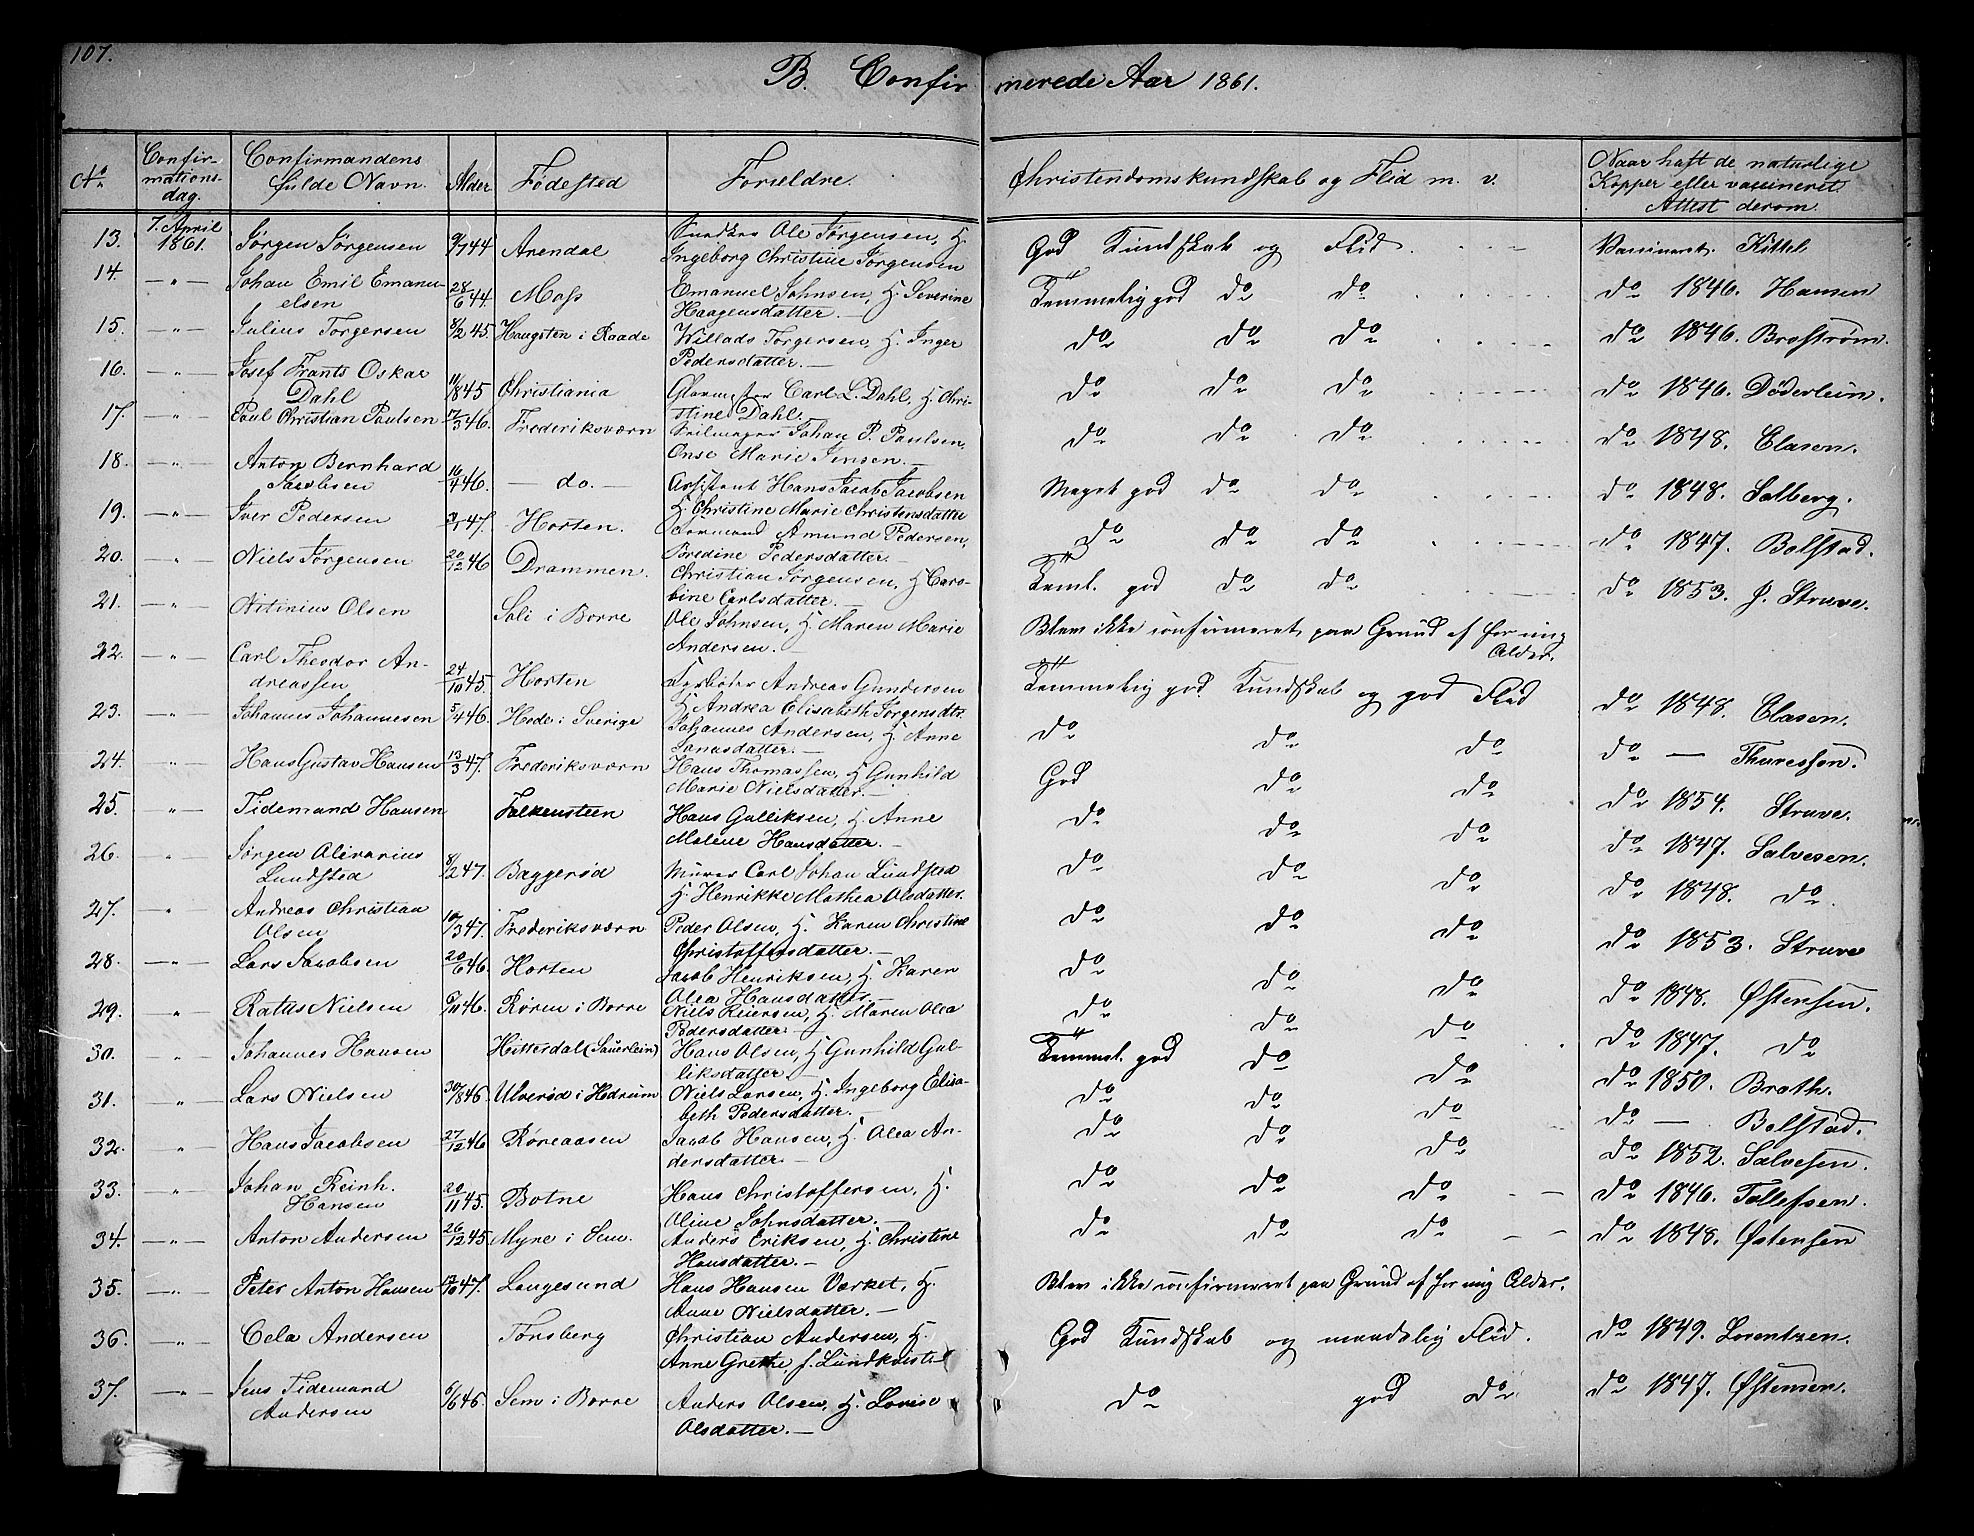 107.
B. Confirmerede Aar 1861.
No
Confirmationsdag.
Confirmandens fulde Navn.
Alder
Födested
Forældre.
Christendomskundskab og Flid m. v.
Naar haft de naturlige Kopper eller vaccineret Attest derom.
13. 7. April 1861. Jørgen Jørgensen 9/7 44 Arendal Ole Jørgensen, H. God Kundskab og Flid Vaccineret. Kittel.
Ingeborg Christine Jørgensen
14. —"— Johan Emil Emanu- 28/6 44. Moss Emanuel Johnsen, H. Severine Temmelig god do do do 1846. Hansen
elsen Haagensdatter.—
15. —"— Julius Torgersen 8/2 45. Haugsten i Raade Willads Torgersen, H. Inger do do do do 1846. Brostrøm.
Pedersdatter.—
16. —"— Josef Frants Oskar 11/8 45 Christiania Carl L. Dahl, H. Chri- do do do do 1846. Döderlein.
Dahl stine Dahl.
17. —"— Paul Christian Paulsen 17/3 46. Frederiksværn Seilmager Johan P. Paulsen, do do do do 1848. Clasen.
Marie Jensen.—
18. —"— Anton Bernhard 16/4 46. — do. — Assistent Hans Jacob Jacobsen Meget god do do do 1848. Solberg.
Jacobsen H. Christine Marie Christensdatter
19. —"— Iver Pedersen 3/1 47. Horten. Amund Pedersen, do do do do 1847. Bolstad.
Bredine Pedersdatter.—
20. —"— Niels Jørgensen 20/12 46 Drammen. Christian Jørgensen, H. Caro- Teml. god do do do 1853. J. Struve.
bine Carlsdatter.—
21. —"— Nitinius Olsen Soli i Borre Ole Johnsen, H. Maren Marie Blev ikke confirmeret paa Grund af for ung
Andersen. Alder.
22. —"— Carl Theodor An- 24/10 45. Horten Andreas Gundersen Temmelig god Kundskab og god Flid do 1848. Clasen.
dreassen H. Andrea Elisabeth Jørgensdtr.
23. —"— Johannes Johannesen 5/4 46. Hede i Sverige Johannes Andersen, H. Anne do do do do — Thoressen.
Jonasdatter.—
24. —"— Hans Gustav Hansen 13/3 47. Frederiksværn Hans Thomassen, H. Gunhild God do do do 1854. Struve.
Marie Nielsdatter.—
25. —"— Tidemand Hansen Falkensteen Hans Gulliksen, H. Anne do do do do 1847. Salvesen.
Malene Hansdatter.—
26. —"— Jørgen Alivarius 8/2 47. Baggerød Murer Carl Johan Lundsted do do do do 1848. do
Lundsted H. Henrikke Mathea Olsdatter.
27. —"— Andreas Christian 10/3 47. Frederiksværn Peder Olsen, H. Karen Christine do do do do 1853. Struve
Olsen Christoffersdatter.—
28. —"— Lars Jacobsen 20/6 46 Horten Jacob Henriksen, H. Karen do do do do 1848. Østensen.
Olea Hansdatter.—
29. " Ratus Nielsen 6/11 46. Røren i Borre Niels Reiersen, H. Maren Olea do do do do 1847. do
Pedersdatter.—
30. —"— Johannes Hansen Hitterdal (Sauerlein) Hans Olsen, H. Gunhild Gul- Temmel. god do do do 1850. Broth.
liksdatter.—
31. —"— Lars Nielsen 30/8 46 Ulverød i Hedrum Niels Larsen, H. Ingeborg Elisa- do do do do — Bolstad.
beth Pedersdatter.—
32. —"— Hans Jacobsen 27/12 46 Røreaasen Jacob Hansen, H. Olea An- do do do do 1852. Salvesen.
dersdatter.—
33. —"— Johan Reinh. 20/11 45. Botne Hans Christoffersen, H. do do do do 1846. Tollefsen.
Hansen Oline Johnsdatter.—
34. —"— Anton Andersen 26/12 45 Myre i Sem. Anders Eriksen, H. Christine do do do do 1848. Østensen
Hansdatter.—
35. —"— Peter Anton Hansen 17/10 47. Langesund Hans Hansen Værket, H. Blev ikke confirmeret paa Grund af for ung Alder.
Anne Nielsdatter.—
36. —"— Cela Andersen Tønsberg Christian Andersen, H. God Kundskab og maadelig Flid. do 1849. Lorentzen.
Anne Grethe f. Lundkvist.
37. —"— Jens Tidemand 6/6 46. Sem i Borre Anders Olsen, H. Lovise do god do do 1847. Østensen.
Andersen Olsdatter.—